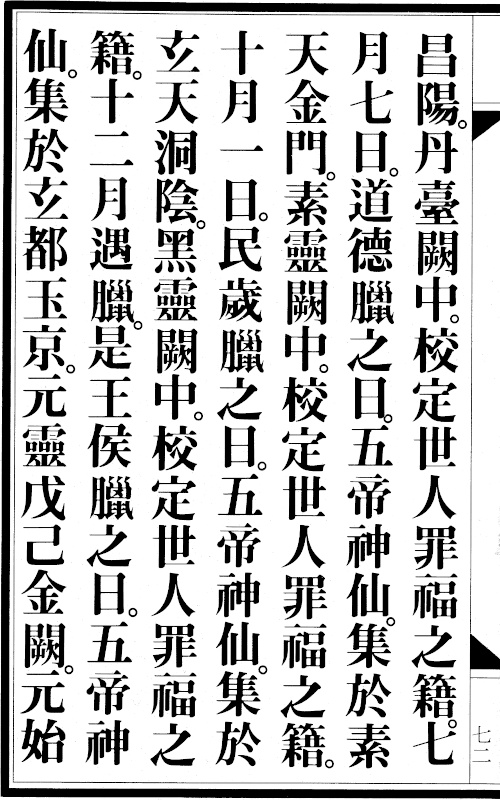 昌陽。丹臺闕中。校定世人罪福之籍。七
月七日。道德臘之日。五帝神仙。集於素
天金門。素靈闕中。校定世人罪福之籍。
十月一日。民歲臘之日。五帝神仙。集於
玄天洞陰。黑靈闕中。校定世人罪福之
籍。十二月遇臘。是王侯臘之日。五帝神
仙。集於玄都玉京。元靈戊己金闕。元始
七二